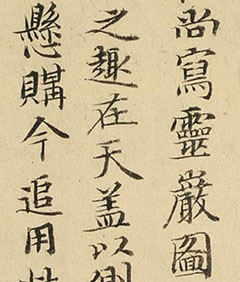 尚寫靈巖圖
之趣在天盖以
懸購今追用